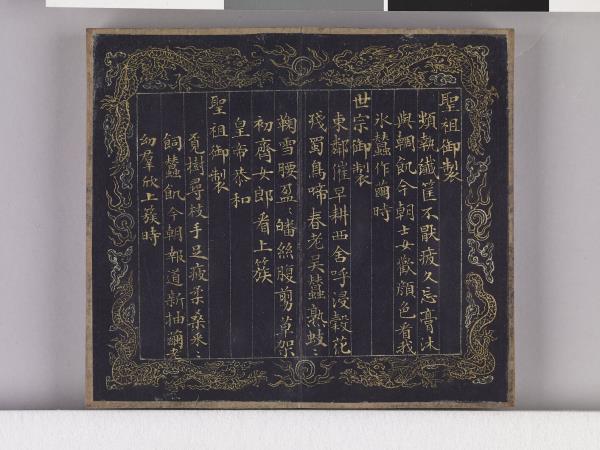 聖祖御製
頻執纖筐不厭疲久忘膏沐
與調飢今朝士女歡顏色看我
冰蠶作繭時
世宗御製
東鄰催早耕西舍呼浸穀花
殘蜀鳥啼春老吳蠶熟蚑〻
鞠雪腰盈〻皤絲腹剪草架
初齊女郎看上簇
皇帝恭和
聖祖御製
覓樹尋枝手足疲柔桑采〻
飼蠶飢今朝報道新抽繭老
幼羣欣上簇時